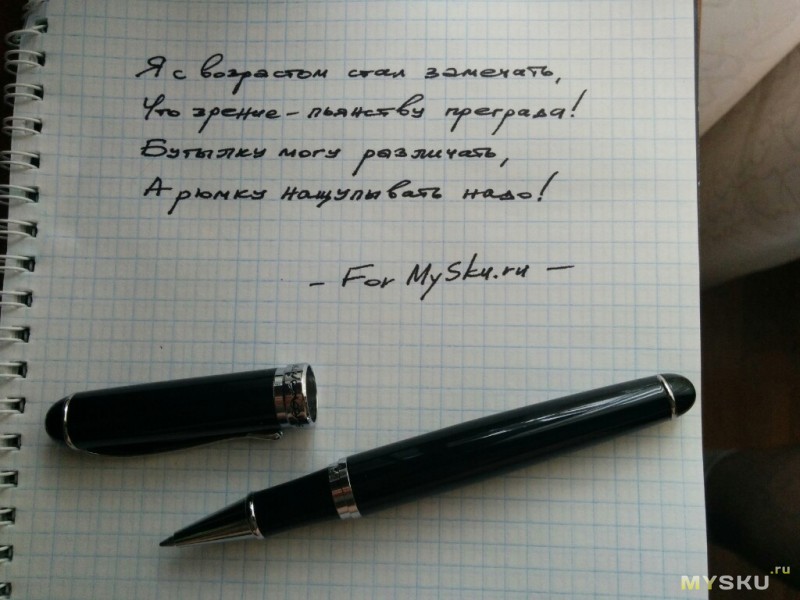 Я с возрастом стал замечать,
Что зрение - пьянству преграда!
Бутылку могу различать,
А рюмку нащупывать надо!
- For MySku.ru -
MYSKU.ru